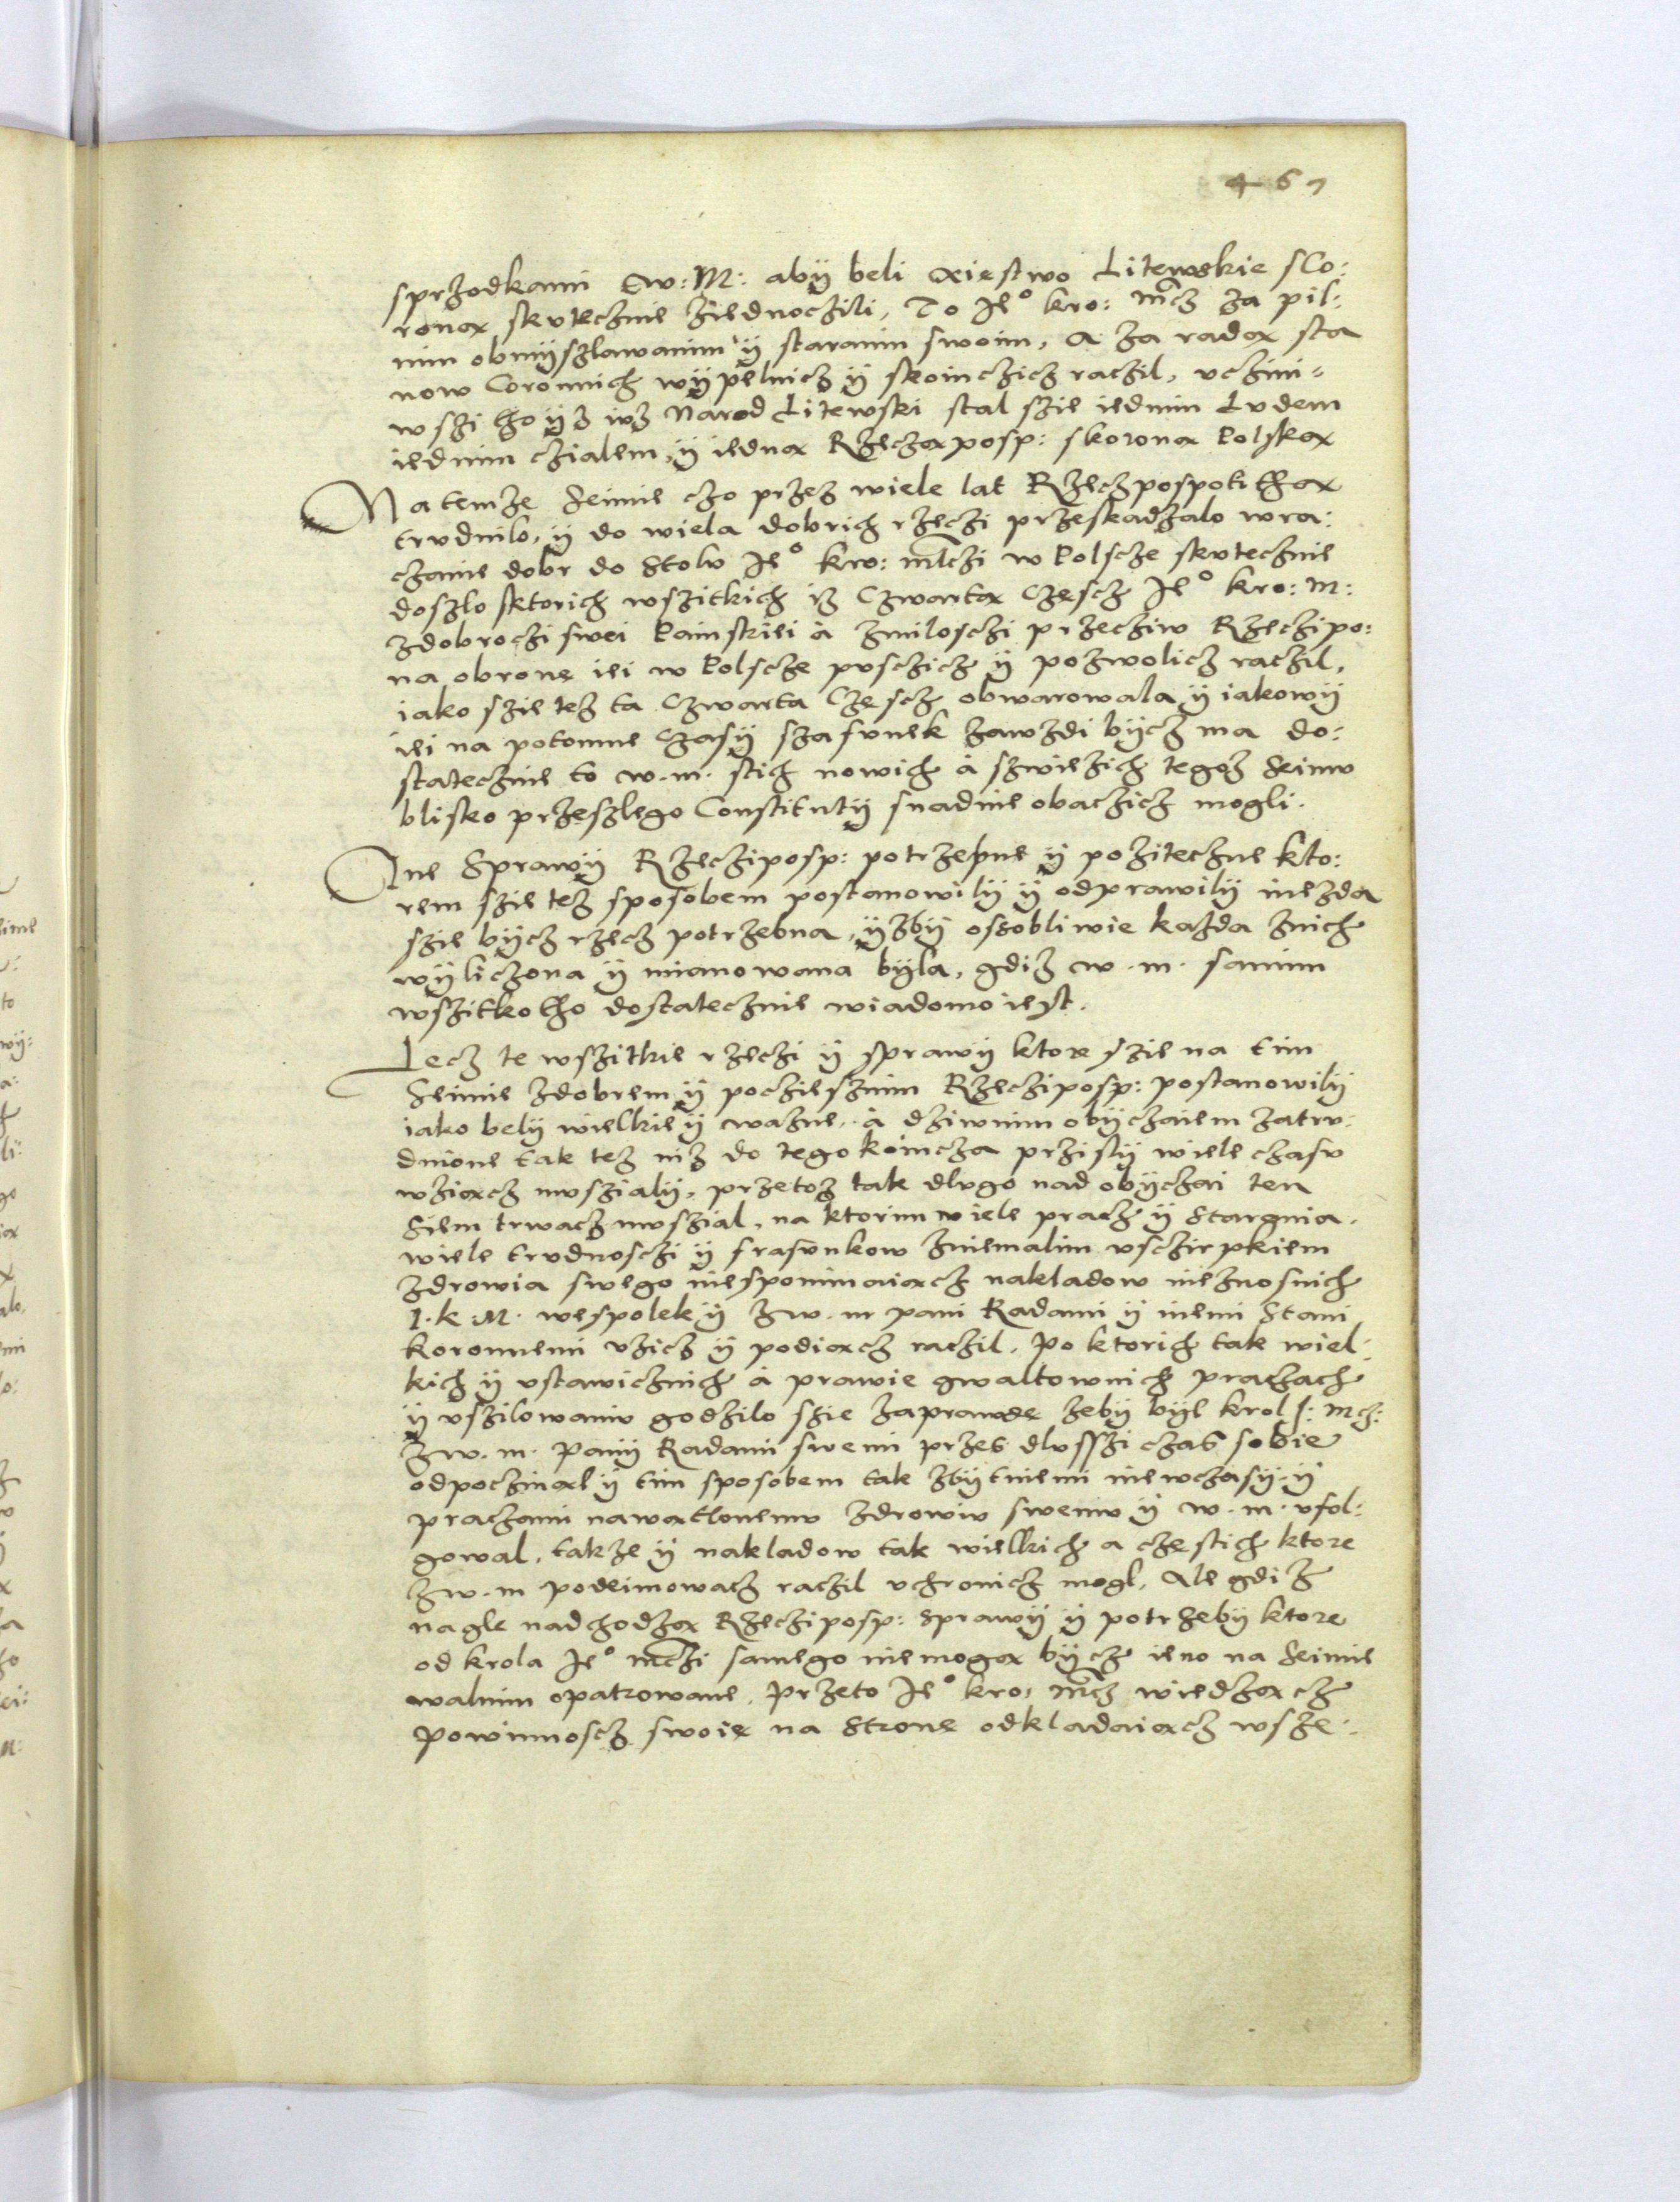 467
sprzodkami Ew: M: abÿ beli Xięstwo Litewskie sCo:
ronax skutecznie ziednoczili, To Ie° kro: mcz za pil:
nim obmÿszlawanim ÿ staranim swoim, A za radax sta
now Coronnich wÿpelnicz ÿ skoinczicz raczil, uczini=
wszi tho ÿz iuz Narod Litewski stal szie iednim Ludem
iednim czialem, ÿ iednax Rzeczaxposp: skoronax Polskax
Na temze Seimie czo przez wiele lat Rzeczpospolithax
trudnilo, ÿ do wiela dobrich rzeczi przeskadzalo wra:
czanie dobr do Stolu Ie° kro: mczi w Polscze skutecznie
doszlo sktorich wszitkich iz Czwartax Czescz Ie° kro: M:
zdobroczi swei Painskiei à zmiloschi przeciw Rzeczipo:
na obronę iei w Polscze puschicz ÿ pozwolicz raczil,
iako szie tez ta Czwarta Czescz obwarowala ÿ iakowÿ
iei na potomne Czasÿ szafunek zawzdi bÿcz ma do:
statecznie to w. m. stich nowich à szwiezich tegoz Seimu
blisko przeszlego Constitutÿ snadnie obaczicz mogli.
Ine Sprawÿ Rzecziposp: potrzebne ÿ pozitechne kto:
rem szie tez sposobem postanowilÿ ÿ odprawilÿ niezda
szie bÿcz rzecz potrzebna, ÿzbÿ ossobliwie kazda znich
wÿliczona ÿ mianowana bÿla, gdiz w. m. samim
wszitko tho dostatecznie wiadomo iest.
Lecz te wszitkie rzeczi ÿ sprawÿ ktore szie na tim
Seimie zdobrem ÿ pocziesznim Rzecziposp: postanowilÿ
iako belÿ wielkie ÿ wazne, à dziwnim obÿczaiem zatru:
dnione tak tez niz do tego koincza przislÿ wiele czasu
wziaxcz muszialÿ, przetoz tak dlugo nad obÿczai ten
Siem trwacz muszial, na ktorim wiele pracz ÿ Starania.
wiele trudnosczi ÿ frasunkow zniemalim usczirpkiem
zdrowia swego niespominaiaxcz nakladow nieznosnich
I. k. M. wespolek ÿ zw. m pani Radami ÿ inemi Stani
koronnemi uzicz ÿ podiaxcz raczil. Po ktorich tak wiel:
kich ÿ ustawicznich à prawie gwaltownich prachach
ÿ uszilowaniu godzilo szie zaprawdę zebÿ bÿl krol J: Mcz:
zw. m. Panÿ Radami swemi przes dlusszi czas sobie
odpoczinaxl ÿ tim sposobem tak zbÿtniemi niewczasÿ ÿ
prachami nawaxtlonemu zdrowiu swemu ÿ w. m. ufol:
gowal, takze ÿ nakladow tak wielkich a czestich ktore
zw. m podeimowacz raczil uchronicz mogl, Ale gdiz
nagle nadchodzax Rzecziposp: Sprawÿ ÿ potrzebÿ ktore
od krola Ie° mczi samego niemogax bÿcz ieno na Seimie
walnim opatrowane, Przeto Ie° kro: Mcz wiedzaxcz
Powinnoscz swoię na Stronę odkladaiaxcz wsze: